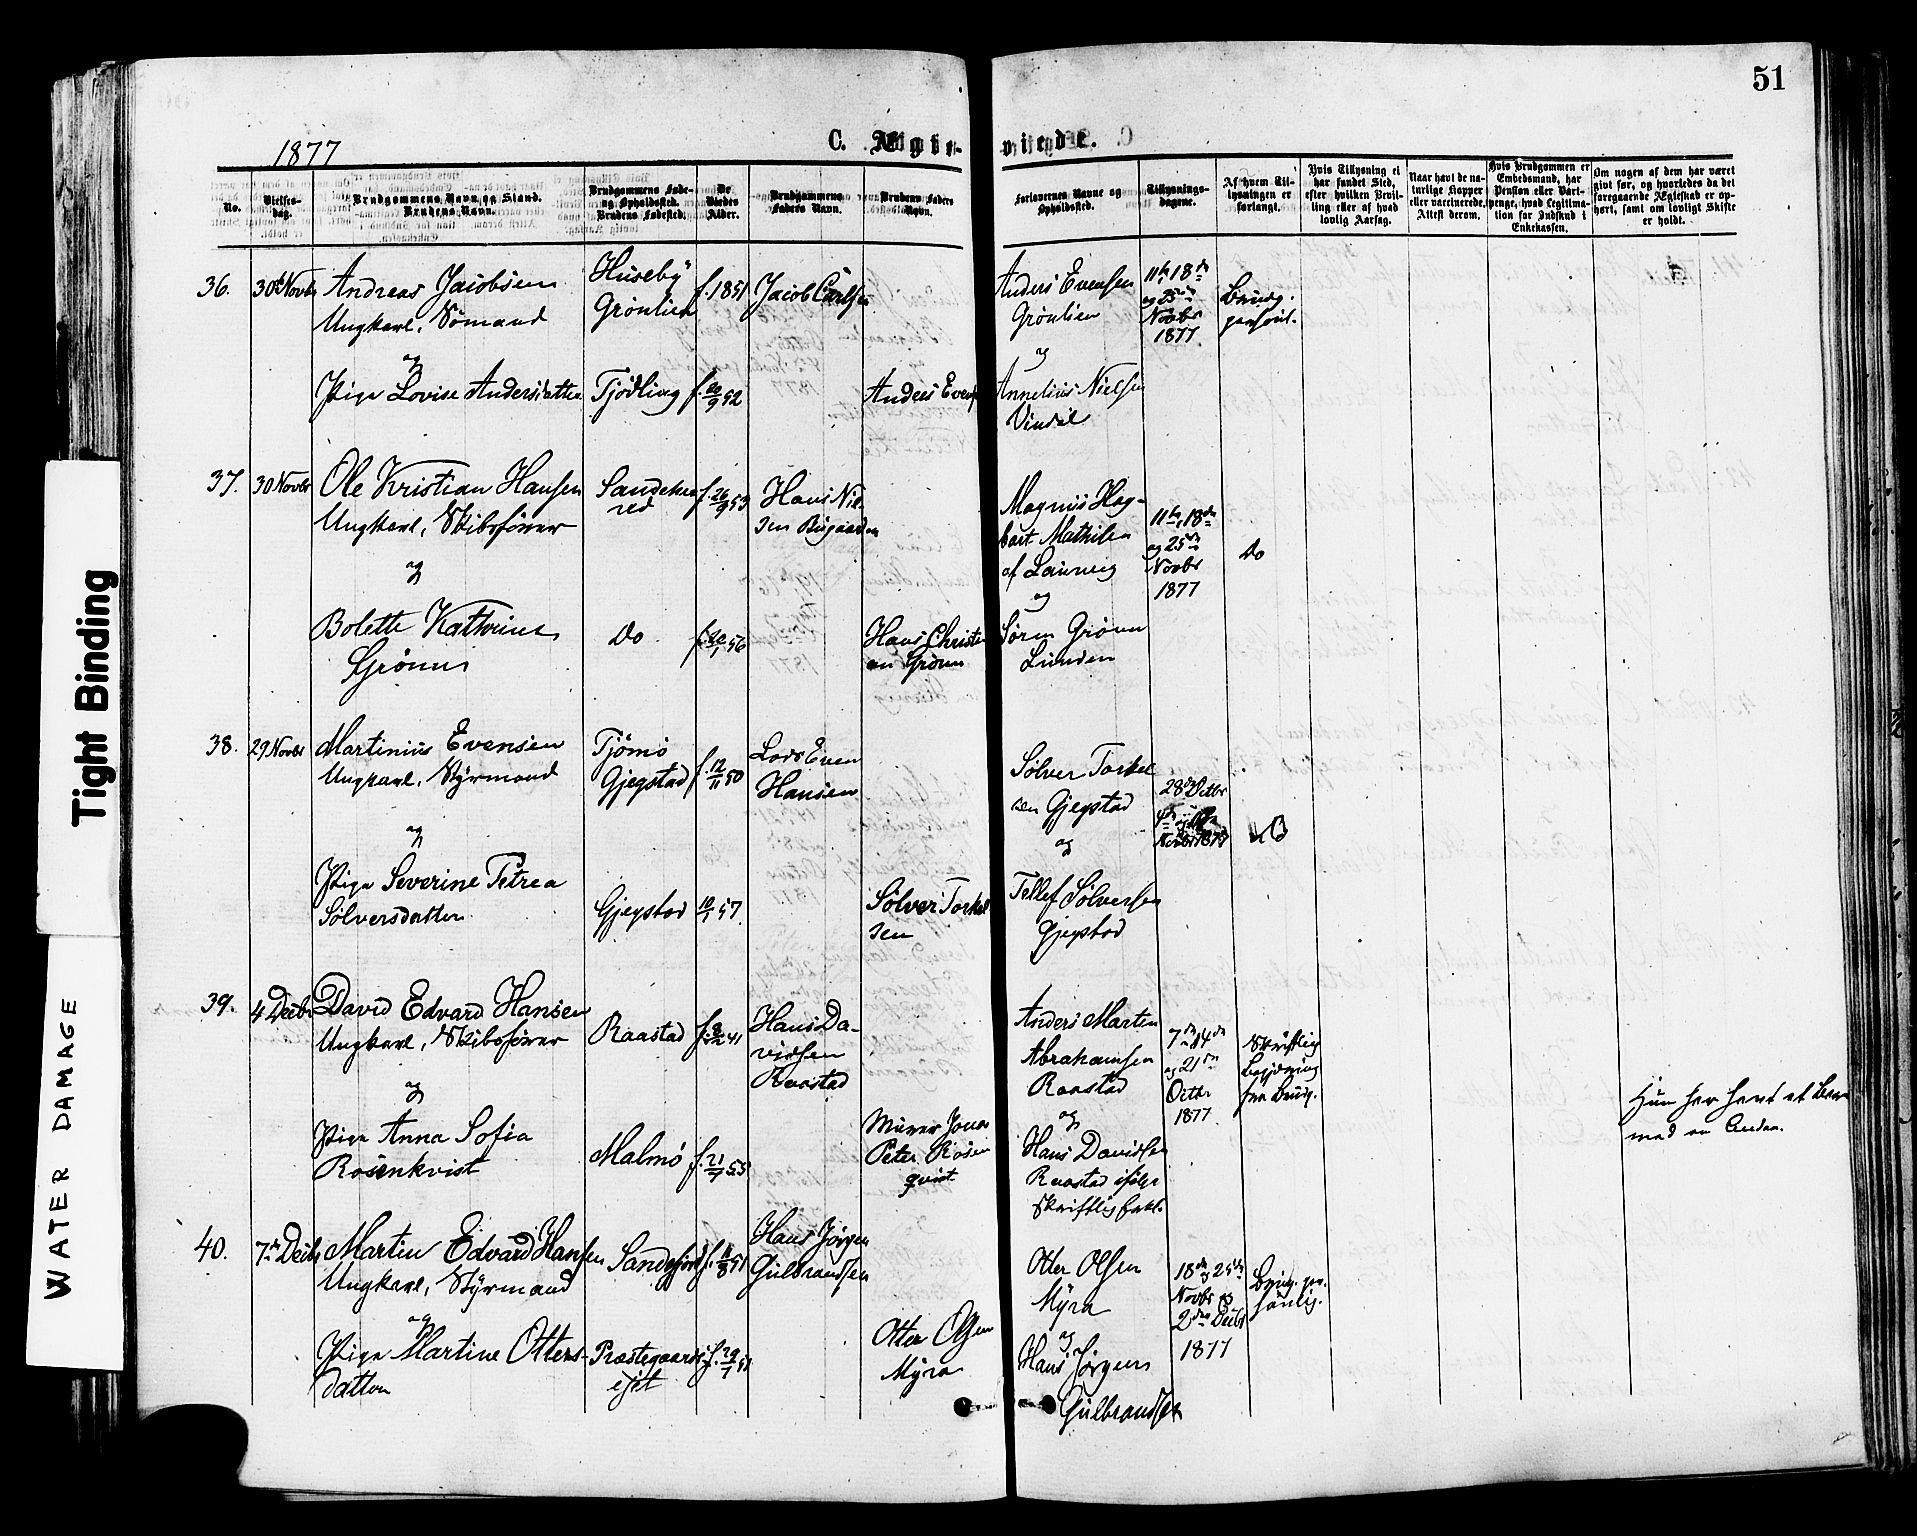 51
1877
C. Ægte-
viede.
No.
Vielses-
dag.
Brudgommens Navn og Stand.
Brudens Navn.
Brudgommens Føde-
og Opholdssted.
Brudens Fødested.
De
Viedes
Alder.
Brudgommens
Faders Navn.
Brudens Faders
Navn.
Forlovernes Navne og
Opholdssted.
Tillysnings-
dagene.
Af hvem Til-
lysningen er
forlangt.
Hvis Tillysning ei
har fundet Sted,
efter hvilken Bevil-
ling eller af hvad
lovlig Aarsag.
Naar havt de na-
turlige Kopper
eller vaccinerede,
Attest derom.
Hvis Brudgommen er
Embedsmand, har
Pension eller Vart-
penge, hvad Legitima-
tion for Indskud i
Enkekassen.
Om nogen af dem har været
gift før, og hvorledes da det
foregaaende Ægteskab er op-
hørt, samt om lovligt Skifte
er holdt.
36.
30 Novbr
Andreas Jacobsen
Ungkarl, Sømand
og
Pige Lovise Andersdatter
Huseby
Grønlien
Tjødling
f. 1851
f. 20/9 52
Jacob Carlsen
Anders Evens
Anders Evensen
Grønlien
og
Annelius Nielsen
Vindal
11te 18de
og 25de
Novbr
1877.
Brudg.
personl.
37.
30 Novbr
Ole Kristian Hansen
Ungkarl, Skibsfører
og
Bolette Kathrine
Grønn
Sandeher
red
Do
f. 26/9 53
f. 20/1 56
Hans Niel
sen Bugaarden
Hans Christi
an Grønn
Magnus Hag-
bart Mathisen
af Laurvig
og
Søren Grønn
Lunden
11te, 18de
og 25de
Novbr
1877
Do
38.
29 Novbr
Martinius Evensen
Ungkarl, Styrmand
og
Pige Severine Petrea
Sølversdatter
Tjømø
Gjegstad
Gjegstad
f. 12/11 50
10/1 57
Lods Even
Hansen
Sølver Torkel
sen
Sølver Torkel
sen Gjegstad
og
Tellef Sølversen
Gjegstad
28de Octbr
Novbr 1877
39.
4 Decbr
David Edvard Hansen
Ungkarl, Skibsfører
og
Pige Anna Sofia
Rosenkvist
Raastad
Malmø
f. 8/2 41
f. 21/7 55
Hans Da-
vidsen
Raastad
Murer Jonas
Peter Rosen
qvist
Anders Martin
Abrahamsen
Raastad
og
Hans Davidsen
Raastad ifølge
skriftlig Erkl.
7de 14de
og 21de
Octbr
1877
Skriftlig
Begjæring
fra Brudg.
Hun har havt et Barn
med en Anden.
40.
7de Decbr
Martin Edvard Hansen
Ungkarl, Styrmand
og
Pige Martine Otters-
datter
Sandefjord
Præstegaards
ejet
f. 11/8 51
f. 29/7 51
Hans Jørgen
Gulbrandsen
Otter Olsen
Myra
Otter Olsen
Myra
og
Hans Jørgen
Gulbrandsen
18de og 25de
Novbr og
2den Decbr
1877
Brudg. per-
sønlig.
Tight Binding
WATER DAMAGE